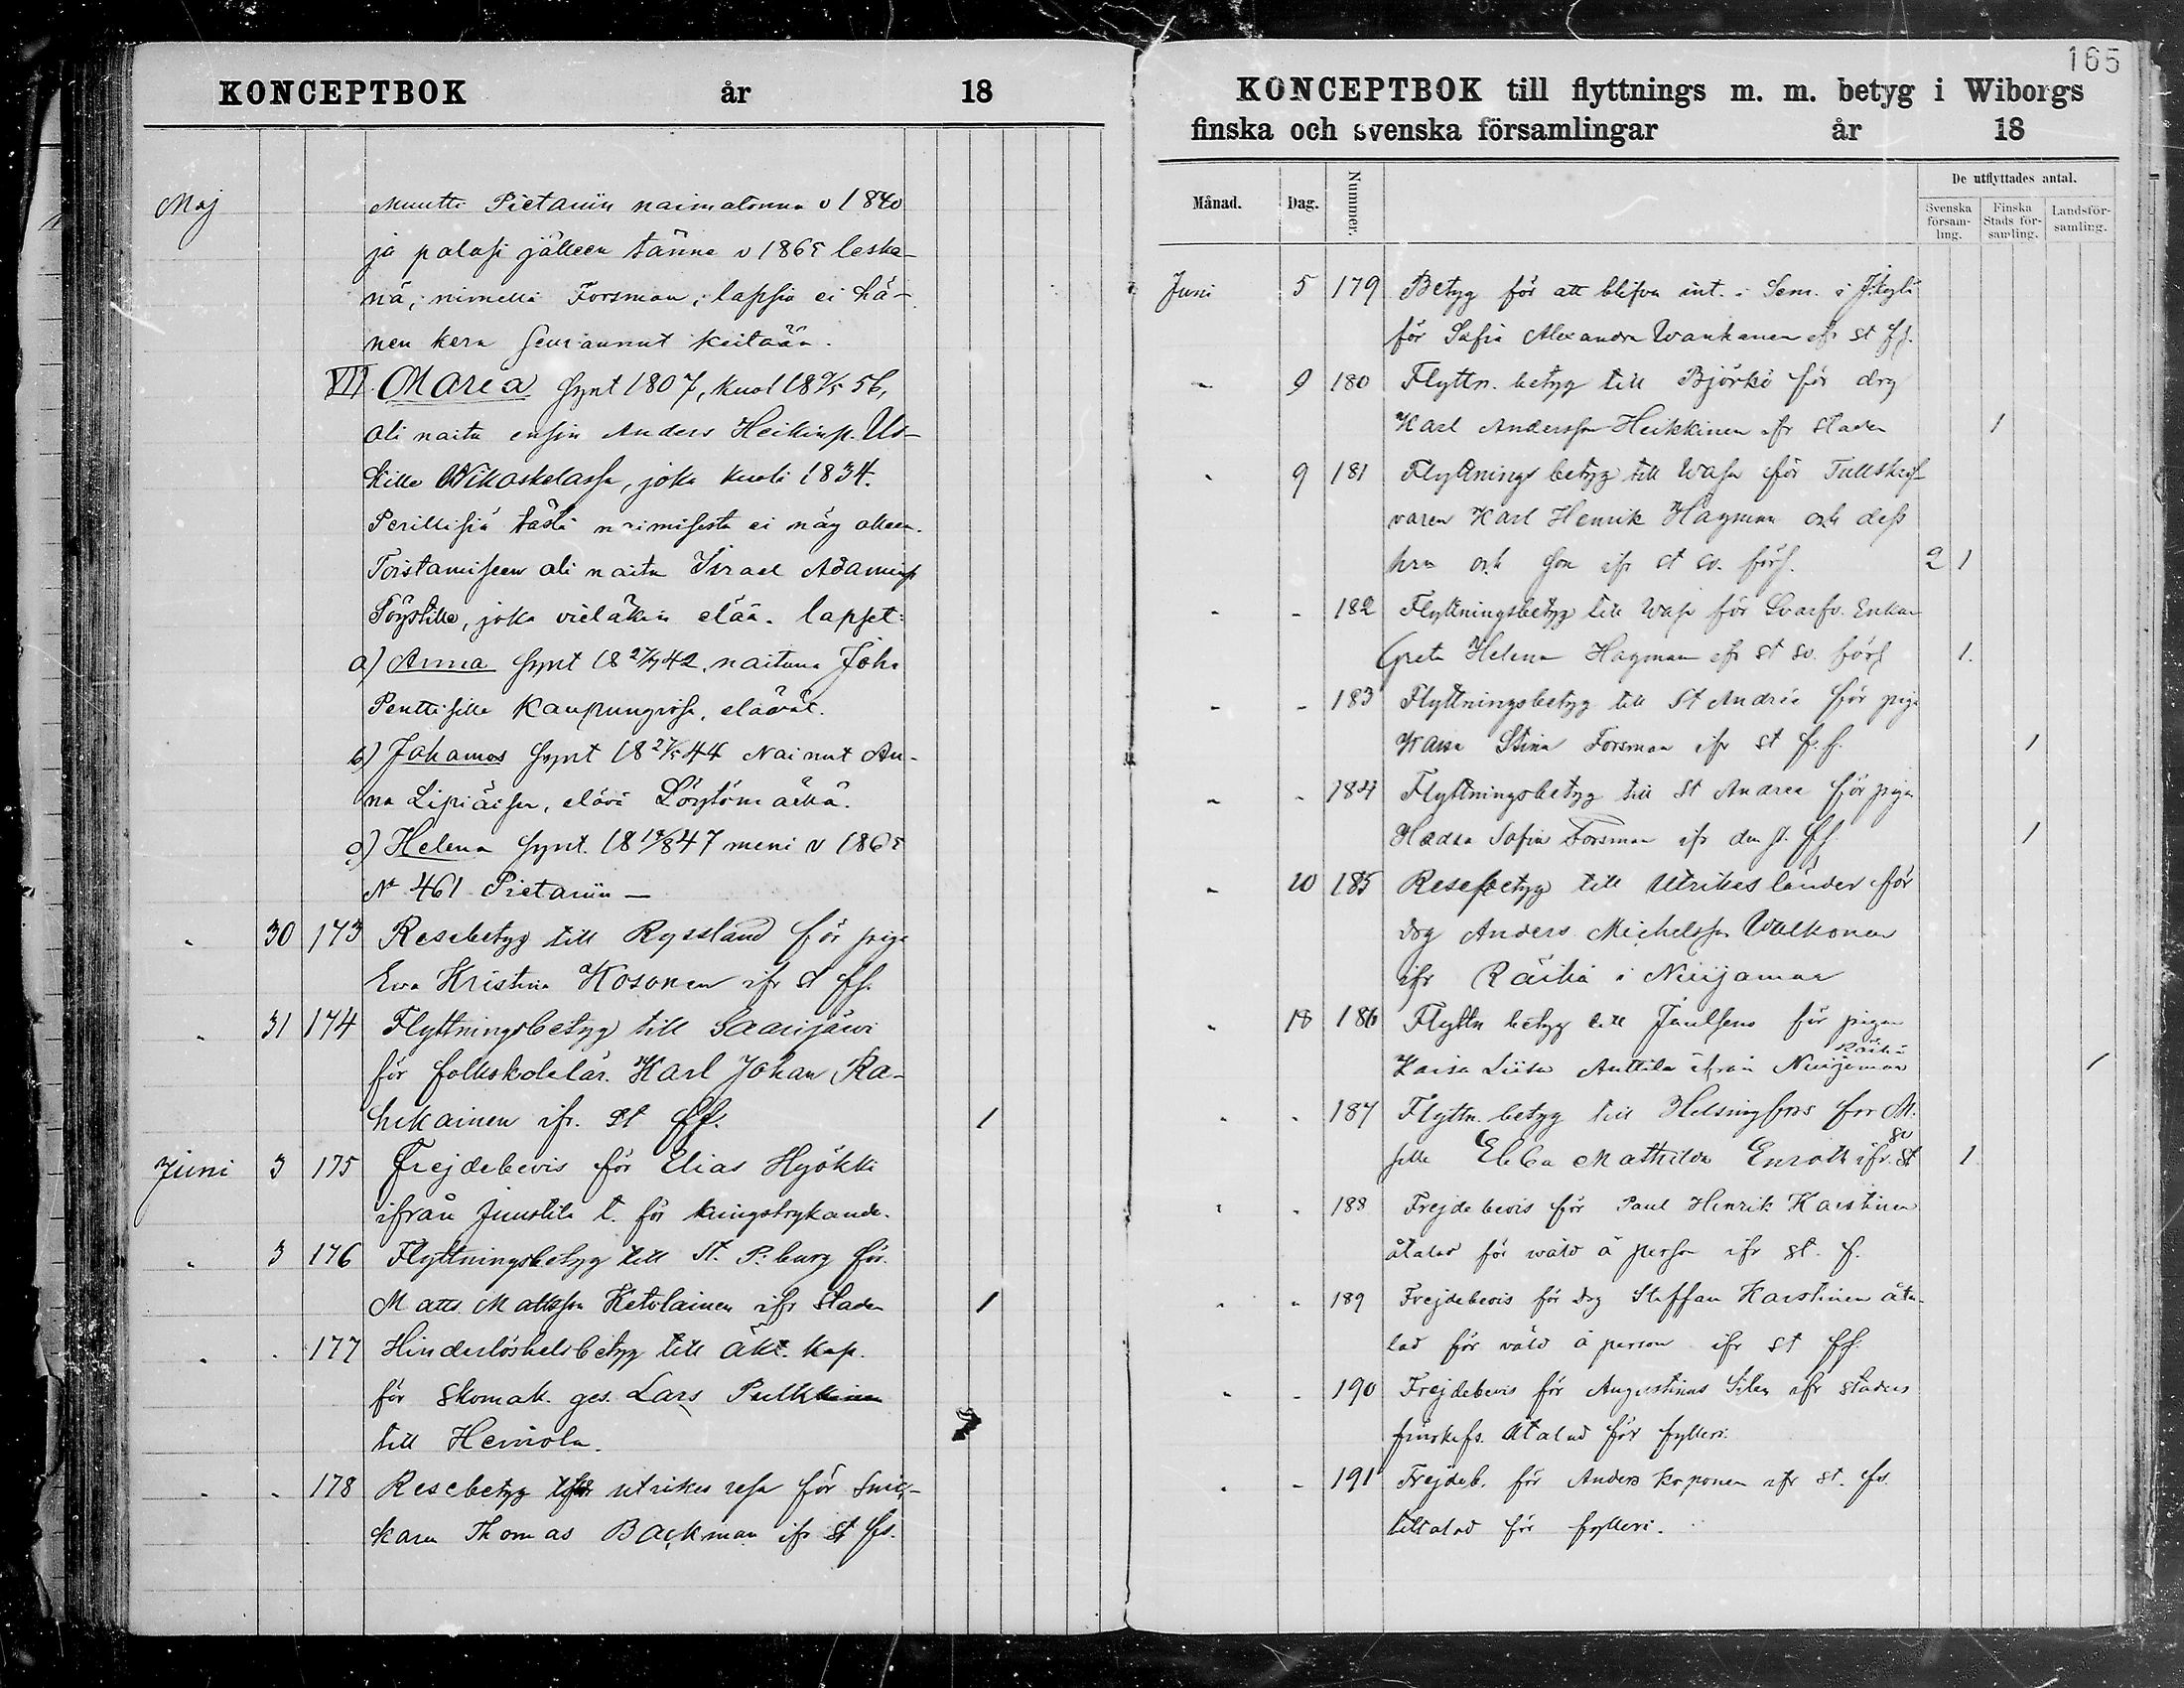 KONCEPTBOK år 18
Maj Muutti Pietariin naimatonna v 1840
ja palasi jälleen tänne v 1865 leske-
nä, nimellä Forsman, lapsia ei hä-
nen kera seurannut keitään.
VII. Maria synt 1807, kuol 18 56,
oli naitu ensin Anders Heikinp. Us-
kille Wikaskelassa, joka kuoli 1834.
Perillisiä tästä naimisesta ei näy olleen.
Toistamiseen oli naitu Israel Adaminp
Pöystille, joka vieläkin elää. lapset:
a) Anna synt 18 27/7 42, naituna Joh.
Penttisille Kaupungissa, elävät.
b) Johannes synt 18 44 Nainut An-
na Lipiäisen, elävä
c) Helena synt. 18 47 meni v 1865
No 461 Pietariin —
" 30 173 Resebetyg till Ryssland för piga
Eva Kristina Kosonen ifr st fs.
" 31 174 Flyttningsbetyg till Saarijärvi
för folkskolelär. Karl Johan Ra-
hikainen ifr. st fs. 1
Juni 3 175 Frejdebevis för Elias Hyökki
ifrån Juustila t. för kringstrykande.
" 3 176 Flyttningsbetyg till St. P:burg för
Matts Mattsson Ketolainen ifr staden 1
" " 177 Hinderlöshetsbetyg till äkt. kap.
för skomak. ges. Lars Pulkkinen
till Heinola.
" " 178 Resebetyg för utrikes resa för snic-
karen Thomas Backman ifr st fs.
165
KONCEPTBOK till flyttnings m. m. betyg i Wiborgs
finska och svenska församlingar år 18
Månad. Dag. Nummer. De utflyttades antal.
Svenska försam-ling. Finska Stads för-samling. Landsför-samling.
Juni 5 179 Betyg för att blifva int. i Sem. i
för Sofia Alexandra Wankanen ifr st fs.
" 9 180 Flyttn. betyg till Björkö för drg
Karl Andersson Heikkinen ifr staden 1
" 9 181 Flyttnings betyg till Wasa för Tullskrif-
varen Karl Henrik Hagman och dess
hru och son ifr st sv. förs. 2 1
" " 182 Flyttningsbetyg till Wasa för Svarfv. Enkan
Greta Helena Hagman ifr st sv. förs 1.
" " 183 Flyttningsbetyg till St Andreæ för piga
Kaisa Stina Forsman ifr st f.f. 1
" " 184 Flyttningsbetyg till St Andreæ för pigan
Hedda Sofia Forsman ifr den st. fs. 1
" 10 185 Resebetyg till Utrikes länder för
drg Anders Michelsson Walkonen
ifr Räihä i Nuijamaa
" 18 186 Flyttn betyg till Jäulsens för pigan
Kaisa Liisa Anttila ifrån Räihä Nuijamaa 1
" " 187 Flyttn. betyg till Helsingfors för M.
selle Ebba Mathilda Enroth ifr. st sv 1
" " 188 Frejdebevis för Paul Henrik Karstinen
åtalad för wåld å person ifr st. f.
" " 189 Frejdebevis för drg Staffan Karstinen åta-
lad för våld å person ifr st fs.
" " 190 Frejdebevis för Augustinus Silen ifr stadens
finska fs. Åtalad för fylleri.
" " 191 Frejdeb. för Anders Koponen ifr st. fs.
tilltalad för fylleri.